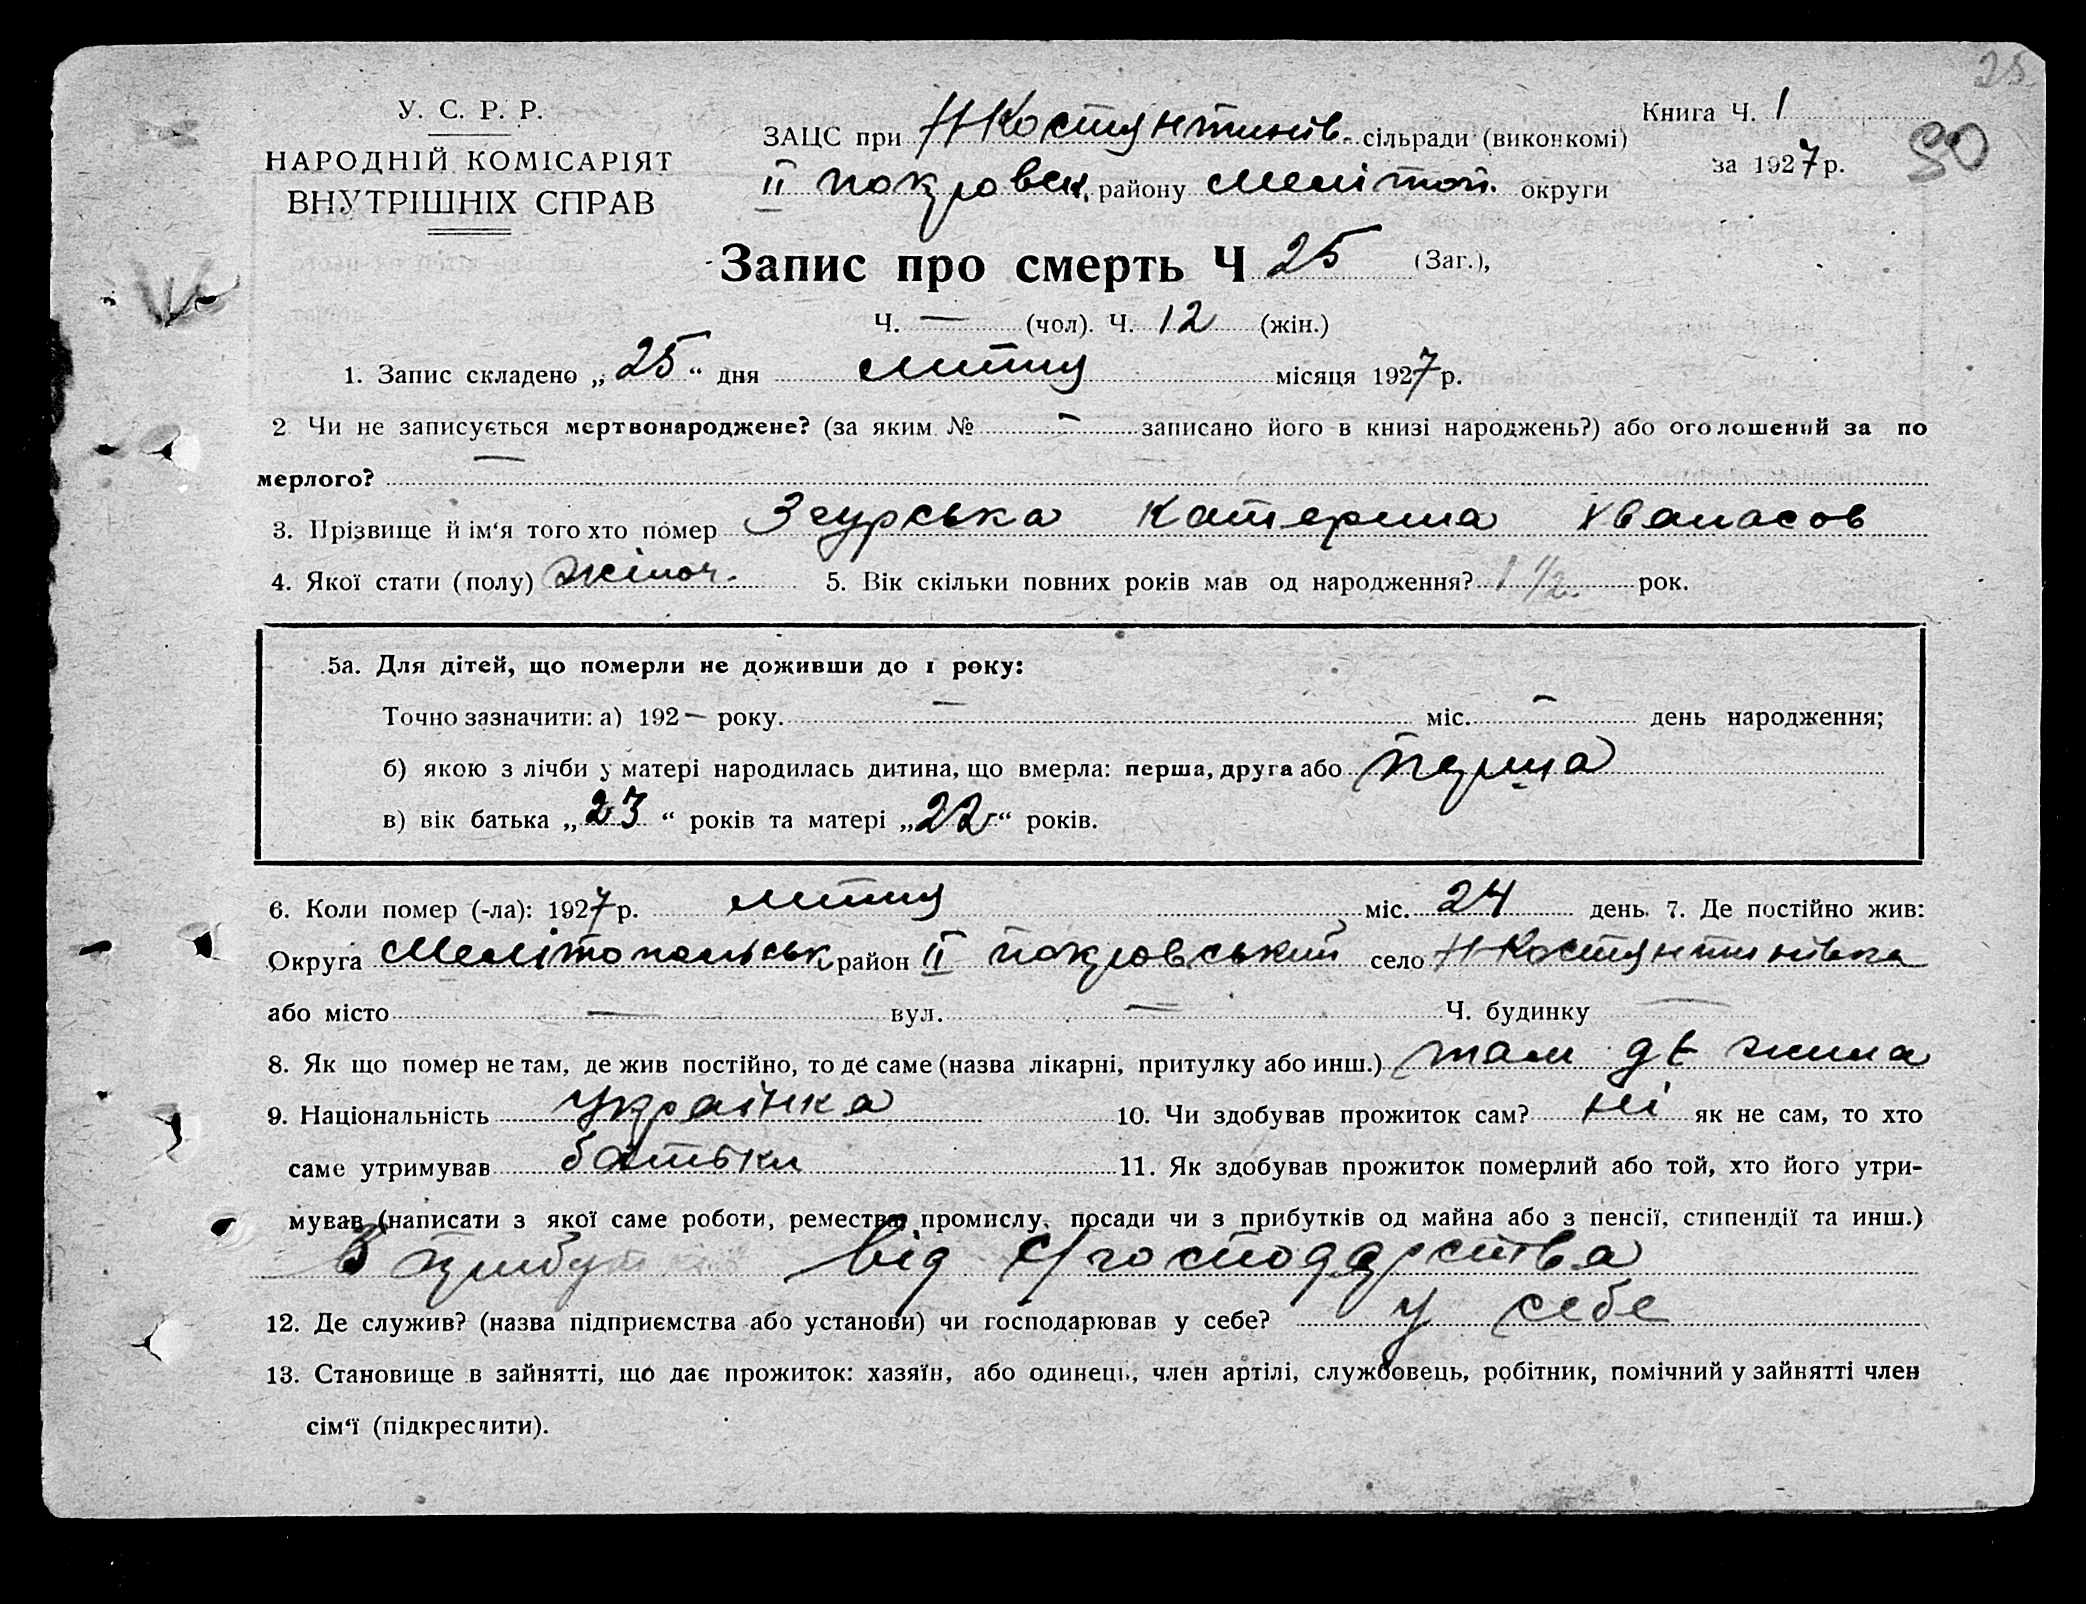 25
У. С. Р. Р.
НАРОДНІЙ КОМІСАРІЯТ
ВНУТРІШНІХ СПРАВ
Книга Ч. 1
за 1927 р.
90
ЗАЦС при Н Костянтинів. сільради (виконкомі)
ІІ покровськ, району Мелітоп. округи
Запис про смерть Ч 25 (Заг.),
Ч. — (чол). Ч. 12 (жін.)
1. Запис складено „25“ дня лютця місяця 1927 р.
2 Чи не записується мертвонароджене? (за яким № — записано його в книзі народжень?) або оголошений за по
мерлого? —
3. Прізвище й ім‘я того хто помер Згурська Катерина Хванасов
4. Якої стати (полу) жіноч. 5. Вік скільки повних років мав од народження? 1 1/2 рок.
5а. Для дітей, що померли не доживши до 1 року:
Точно зазначити: а) 192— року. — міс. — день народження;
б) якою з лічби у матері народилась дитина, що вмерла: перша, друга або перша
в) вік батька „23“ років та матері „22“ років.
6. Коли помер (-ла): 1927 р. лютця міс. 24 день. 7. Де постійно жив:
Округа Мелітопольськ район ІІ покровський село Н Костянтинівка
або місто — вул. — Ч. будинку —
8. Як що помер не там, де жив постійно, то де саме (назва лікарні, притулку або инш.) там де жила
9. Національність українка 10. Чи здобував прожиток сам? Ні як не сам, то хто
саме утримував батьки 11. Як здобував прожиток померлий або той, хто його утри-
мував (написати з якої саме роботи, ремества, промислу, посади чи з прибутків од майна або з пенсії, стипендії та инш.)
З прибутків від с/господарства
12. Де служив? (назва підприємства або установи) чи господарював у себе? у себе
13. Становище в зайнятті, що дає прожиток: хазяїн, або одинець, член артілі, службовець, робітник, помічний у зайнятті член
сім‘ї (підкреслити).